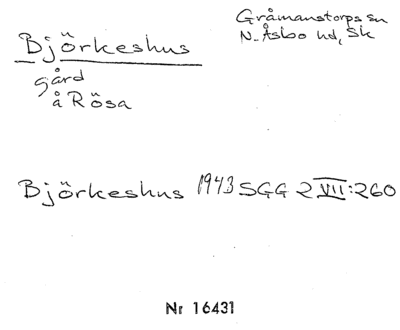 Björkeshus
Gråmanstorps sn
N. Åsbo hd, Sk
gård
å Rösa
Björkeshus 1943 SGG 2 VII:260
Nr 16431